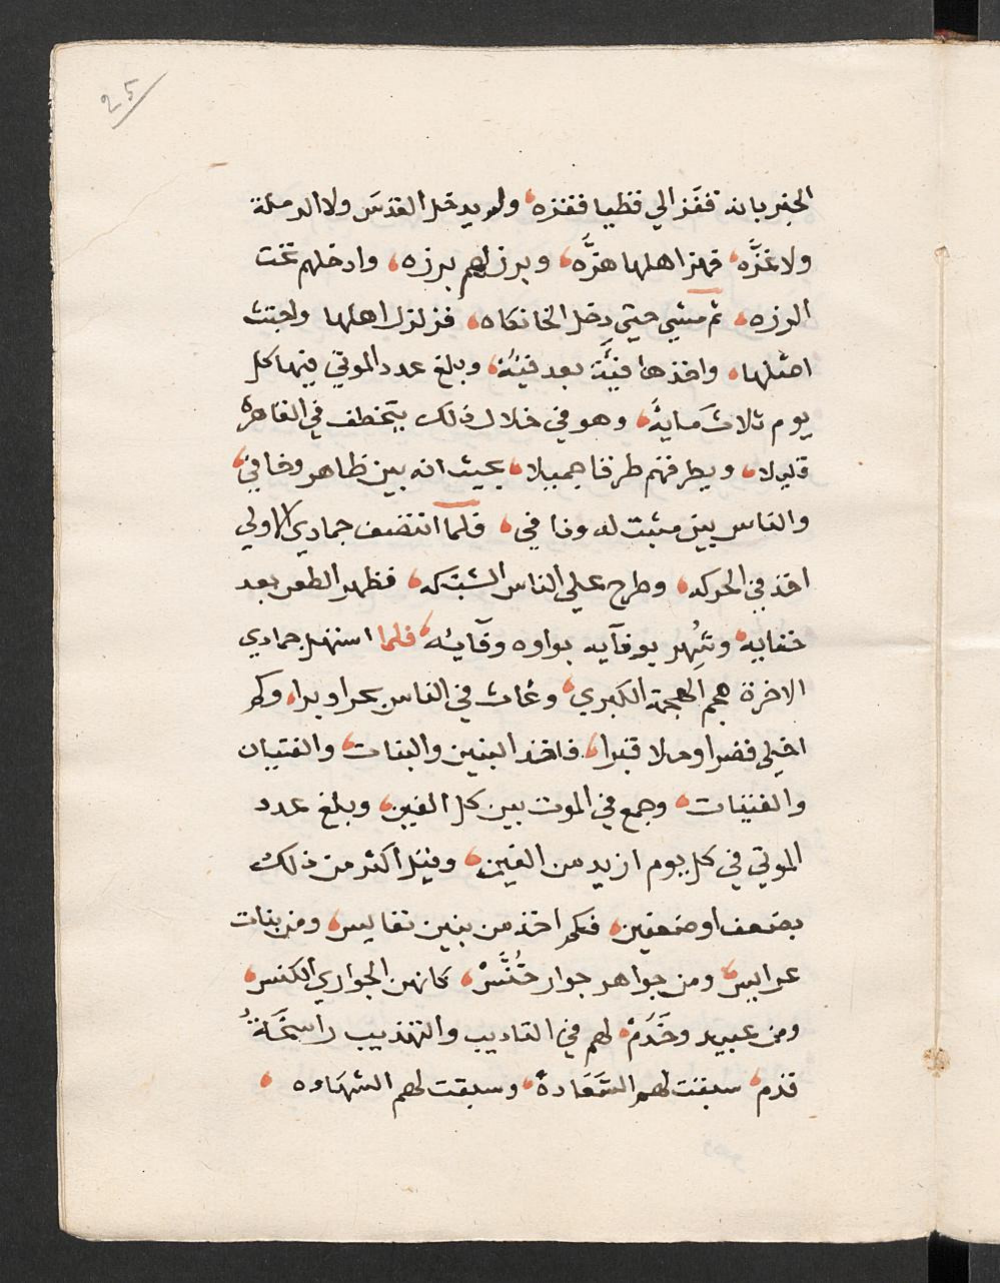 25
الخبر بانه قفز الي قطيا فقزه، ولم يدخل القدس ولا الرملة
ولا غزَّه، فهز اهلها هزَّه، وبرز لهم برزه، وادخلهم تحت
الرزه، ثم مشي حتي دخل الخانكاه، فزلزل اهلها واجتث
اصلها، واخذها فيئَة بعد فيئة، وبلغ عدد الموتي فيها كل
يوم ثلاثَ مايةً، وهو في خلال ذلك يتخطف في القاهرة
قليلا، ويطرقهم طرقا جميلا، بحيث انه بين ظاهر وخافي،
والناس بين مثبت له ونافي، فلما انتصف جمادي الاولي
اخذ في الحركه، وطرح علي الناس الشبَكه، فظهر الطعن بعد
خفايه، وشُهِر بوفآيه بواوه وفآيئه، فلما استهل جمادي
الاخرة هجم الهجمة الكبري، وعاث في الناس بحرا وبرا، وكم
اخلي قصرا وملا قبرا، فاخذ البنين والبنات، والفتيان
والفتيات، وجمع في الموت بين كل الفين، وبلغ عدد
الموتي في كل يوم ازيد من الفين، وقيل اكثر من ذلك
بضعف او ضعفين، فكم اخذ من بنين نفايس، ومن بنات
عرايس، ومن جواهر جوار خُنَّسْ، كانهن الجواري الكنس،
ومن عبيد وخَدَمْ، لهم في التاديب والتهذيب راسخَةُ
قدم، سبقت لهم السَّعَادةُ، وسبقت لهم الشهَاده،